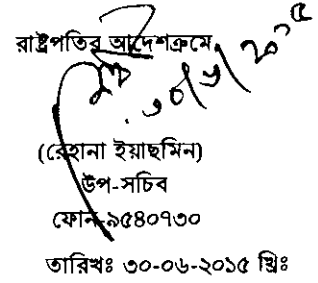 রাষ্ট্রপতির আদেশক্রমে
৩০/৬/২০১৫
(রেহানা ইয়াছমিন)
উপ-সচিব
ফোন-৯৫৪০৭৩০
তারিখঃ ৩০-০৬-২০১৫ খ্রিঃ